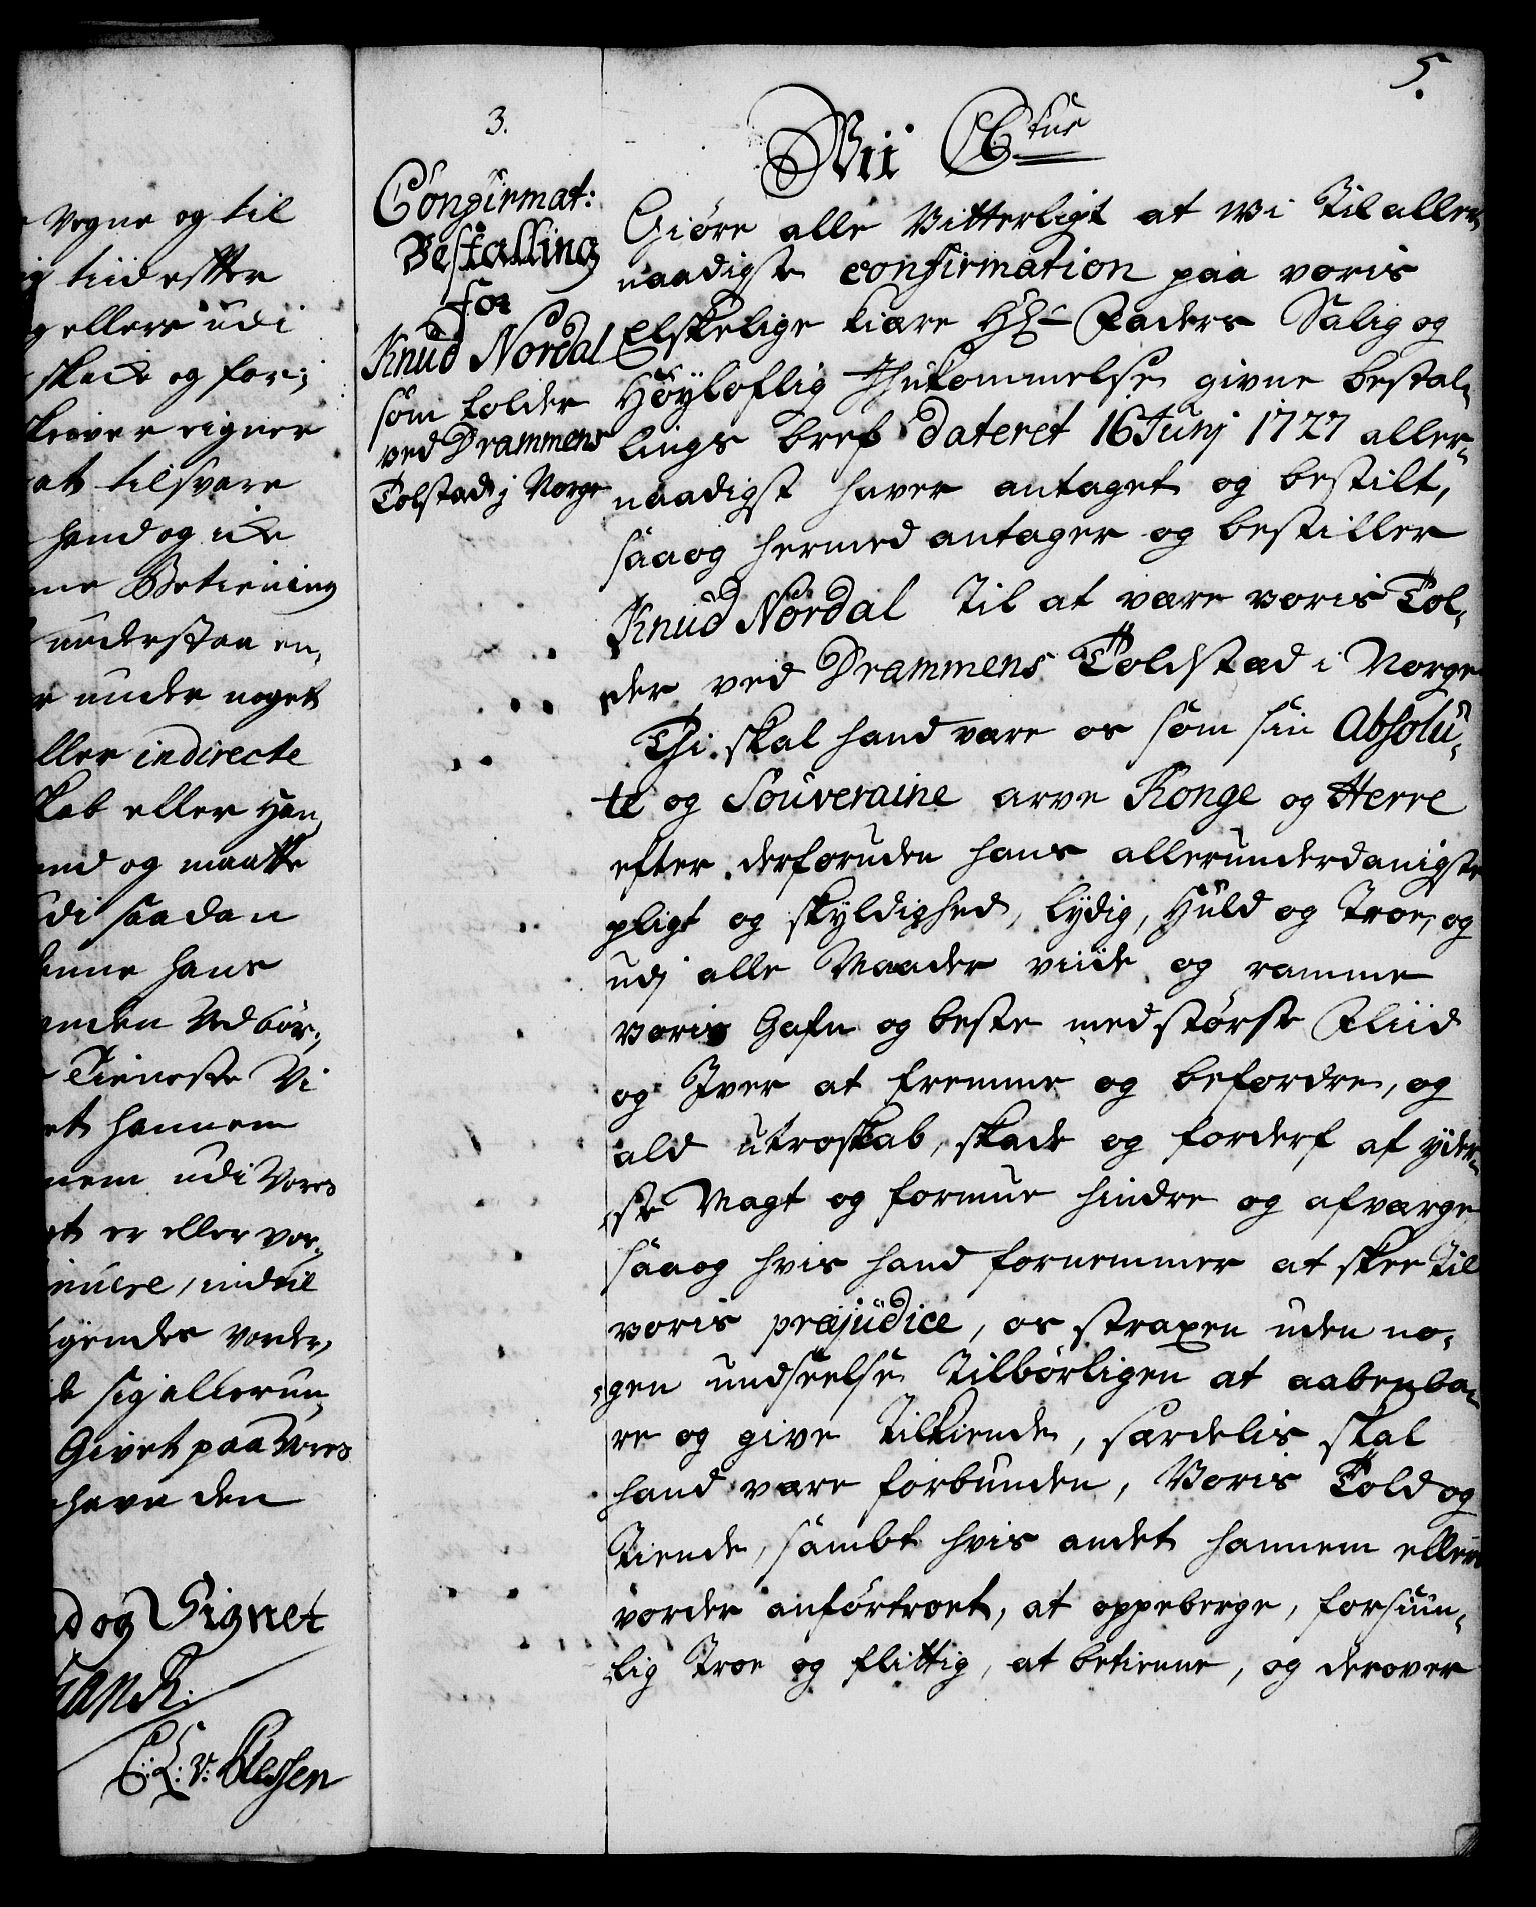 5.
3.
Confirmat:
Bestalling
for
Knud Nordal
som tolder
ved Drammens
Tolsted j Norge
Wii C6 tus
Giöre alle Vitterligt at Wi Til aller,
naadigste confirmation paa voris
Elskelige kiære Hr Faders Salig og
Höyloflig Ihukommelse givne bestal,
lings bref dateret 16 Junj 1727 aller,
naadigst haver antaget og bestilt,
saaog hermed antager og bestiller
Knud Nordal Til at være voris Tol,
der ved Drammens Toldsted i Norge
Thi skal hand være os som sin Absolu,
te og Souveraine arve Konge og Herre
efter derforuden hans allerunderdanigste
pligt og skyldighed, lydig, Huld og Troe, og
udj alle Maader viide og ramme
voris Gafn og beste med störste Fliid
og Iver at fremme og befordre, og
ald utroskab, skade og forderf af yder,
ste Magt og formue hindre og afværge
saaog hvis hand fornemmer at skee Til
voris præjudice, os straxen uden no,
gen undseelse Tilbörligen at aabenba,
re og give Tilkiende, særdelis skal
hand være forbunden, Voris Told og
Tiende, sambt hvis andet hannem ellers
vorder anfortroet, at oppeberge, forsuun,
lig Troe og flittig, at betienne, og derover
Vogne og til
tiid efter
og ellers udi
skrive og for,
skriver eigner
at tilsvare
hand og icke
Betiening
understaa en,
under noget
eller indirecte
skab eller Han,
og maatte
udi saadan
denne hans
anden Ved bör,
Tieneste Vi
et hannem
nem udi Vores
et er eller vor,
nuere, indtil
gendes vorder,
sig allerun,
Givet paa Vores
havn den
d og Signet
ian R:
C: L: v: Plessen